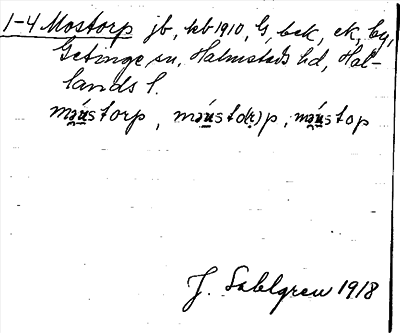 1-4 Mostorp jb, kb 1910, G, bek, ek, by,
Getinge sn, Halmstads hd, Hal-
lands l.
mə̯ústorp, mə̯ústo(r)p, mə̯ústop
J. Sahlgren 1918